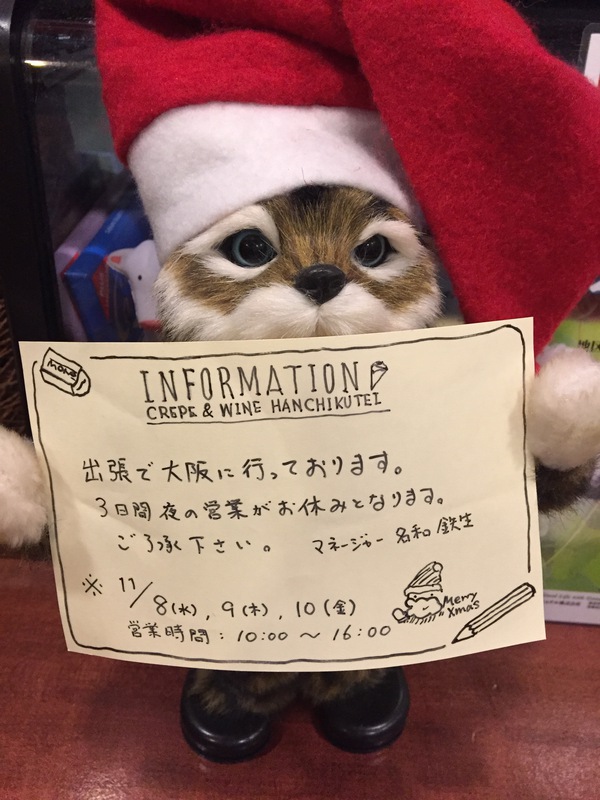 MONO
INFORMATION
CREPE & WINE HANCHIKUTEI
出張で大阪に行っております。
3日間夜の営業がお休みとなります。
ご了承下さい。 マネージャー 名和 鉄生
※ 11/8(水), 9(木), 10(金)
Merry
Xmas
営業時間:10:00 〜 16:00